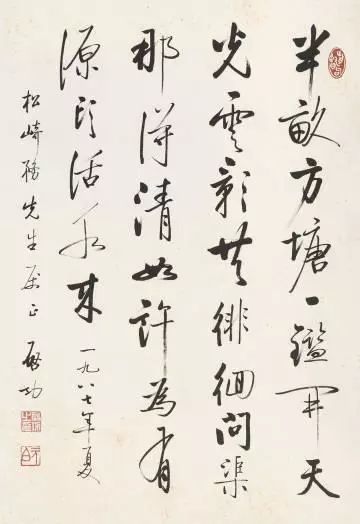 半畝方塘一鑑开天
光雲影共徘徊問渠
那得清如許為有
源頭活水來
一九八七年夏
松崎務先生屬正
启功